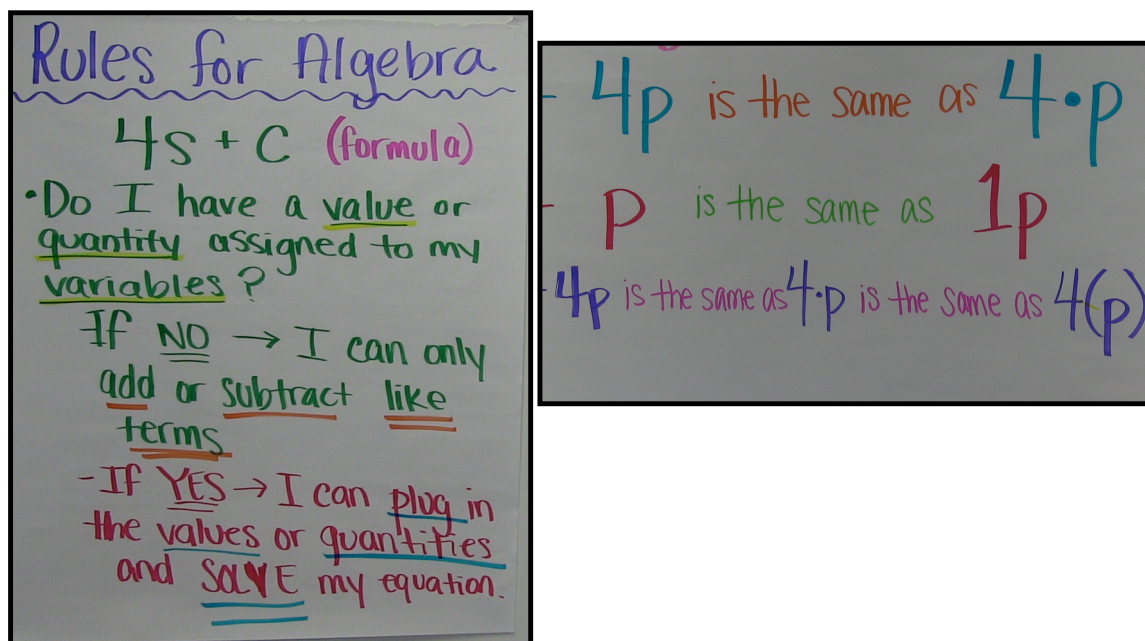 Rules for Algebra
4s + c (formula)
•Do I have a value or
quantity assigned to my
variables?
If NO → I can only
add or subtract like
terms
-If YES → I can plug in
the values or quantities
and SOLVE my equation.
- 4p is the same as 4•p
- p is the same as 1p
-4p is the same as 4•p is the same as 4(p)